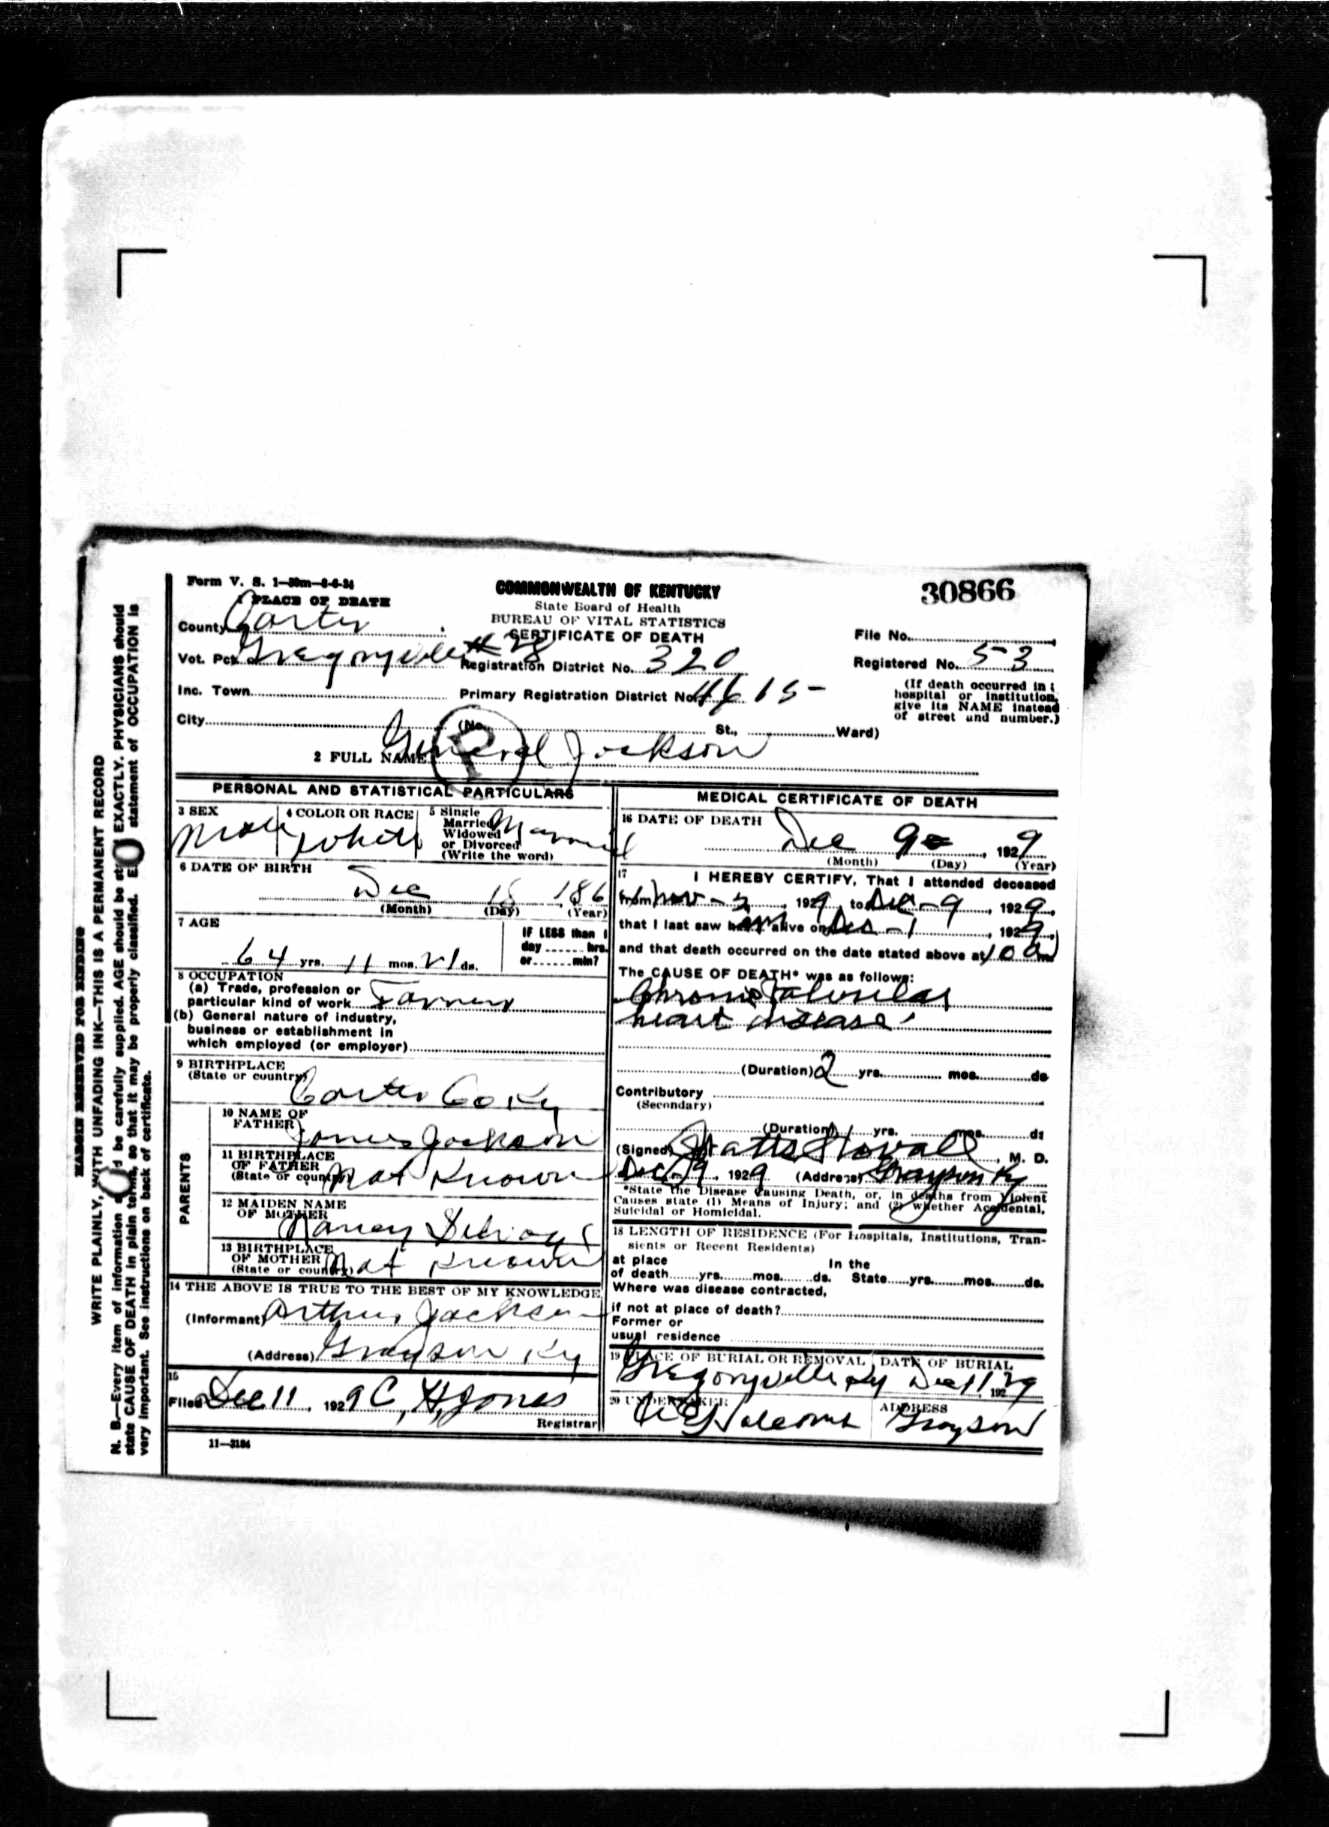 Form V. S. 1—50m—6-6-24
1 PLACE OF DEATH
COMMONWEALTH OF KENTUCKY
State Board of Health
BUREAU OF VITAL STATISTICS
CERTIFICATE OF DEATH
30866
County Carter
File No.
Vot. Pct. Gregoryville # 28
Registration District No. 320
Registered No. 53
Inc. Town
Primary Registration District No. 4615
(If death occurred in a hospital or institution, give its NAME instead of street and number.)
City (No. St., Ward)
2 FULL NAME General Jackson
PERSONAL AND STATISTICAL PARTICULARS
3 SEX Male
4 COLOR OR RACE White
5 Single Married Widowed or Divorced (Write the word) Married
6 DATE OF BIRTH
Dec 18 186
(Month) (Day) (Year)
7 AGE
64 yrs. 11 mos. 21 ds.
IF LESS than 1 day hrs. or min?
8 OCCUPATION
(a) Trade, profession or
particular kind of work Farmer
(b) General nature of industry,
business or establishment in
which employed (or employer)
9 BIRTHPLACE
(State or country) Carter Co Ky
PARENTS
10 NAME OF FATHER James Jackson
11 BIRTHPLACE OF FATHER (State or country) Not Known
12 MAIDEN NAME OF MOTHER Nancy
13 BIRTHPLACE OF MOTHER (State or country) Not Known
14 THE ABOVE IS TRUE TO THE BEST OF MY KNOWLEDGE
(Informant) Arthur Jackson
(Address) Grayson Ky
15
Filed Dec 11, 1929 C, H, Jones
Registrar
11—3184
MEDICAL CERTIFICATE OF DEATH
16 DATE OF DEATH
Dec 9, 1929
(Month) (Day) (Year)
17 I HEREBY CERTIFY, That I attended deceased
from Nov - 2, 1929, to Dec - 9, 1929,
that I last saw him alive on Dec - 1, 1929,
and that death occurred on the date stated above at 10 am
The CAUSE OF DEATH* was as follows:
Chronic Valvular
heart disease
(Duration) 2 yrs. mos. ds
Contributory
(Secondary)
(Duration) yrs. mos. ds
(Signed) Watts Stovall, M. D.
Dec 9, 1929 (Address) Grayson Ky
*State the Disease Causing Death, or, in deaths from Violent
Causes state (1) Means of Injury; and (2) whether Accidental,
Suicidal or Homicidal.
18 LENGTH OF RESIDENCE (For Hospitals, Institutions, Tran-
sients or Recent Residents)
at place In the
of death yrs. mos. ds. State yrs. mos. ds.
Where was disease contracted,
if not at place of death?
Former or
usual residence
19 PLACE OF BURIAL OR REMOVAL DATE OF BURIAL
Gregoryville Ky Dec 11, 1929
20 UNDERTAKER ADDRESS
Grayson
MARGIN RESERVED FOR BINDING
WRITE PLAINLY, WITH UNFADING INK—THIS IS A PERMANENT RECORD
N. B.—Every item of information should be carefully supplied. AGE should be stated EXACTLY. PHYSICIANS should
state CAUSE OF DEATH in plain terms, so that it may be properly classified. Exact statement of OCCUPATION is
very important. See instructions on back of certificate.